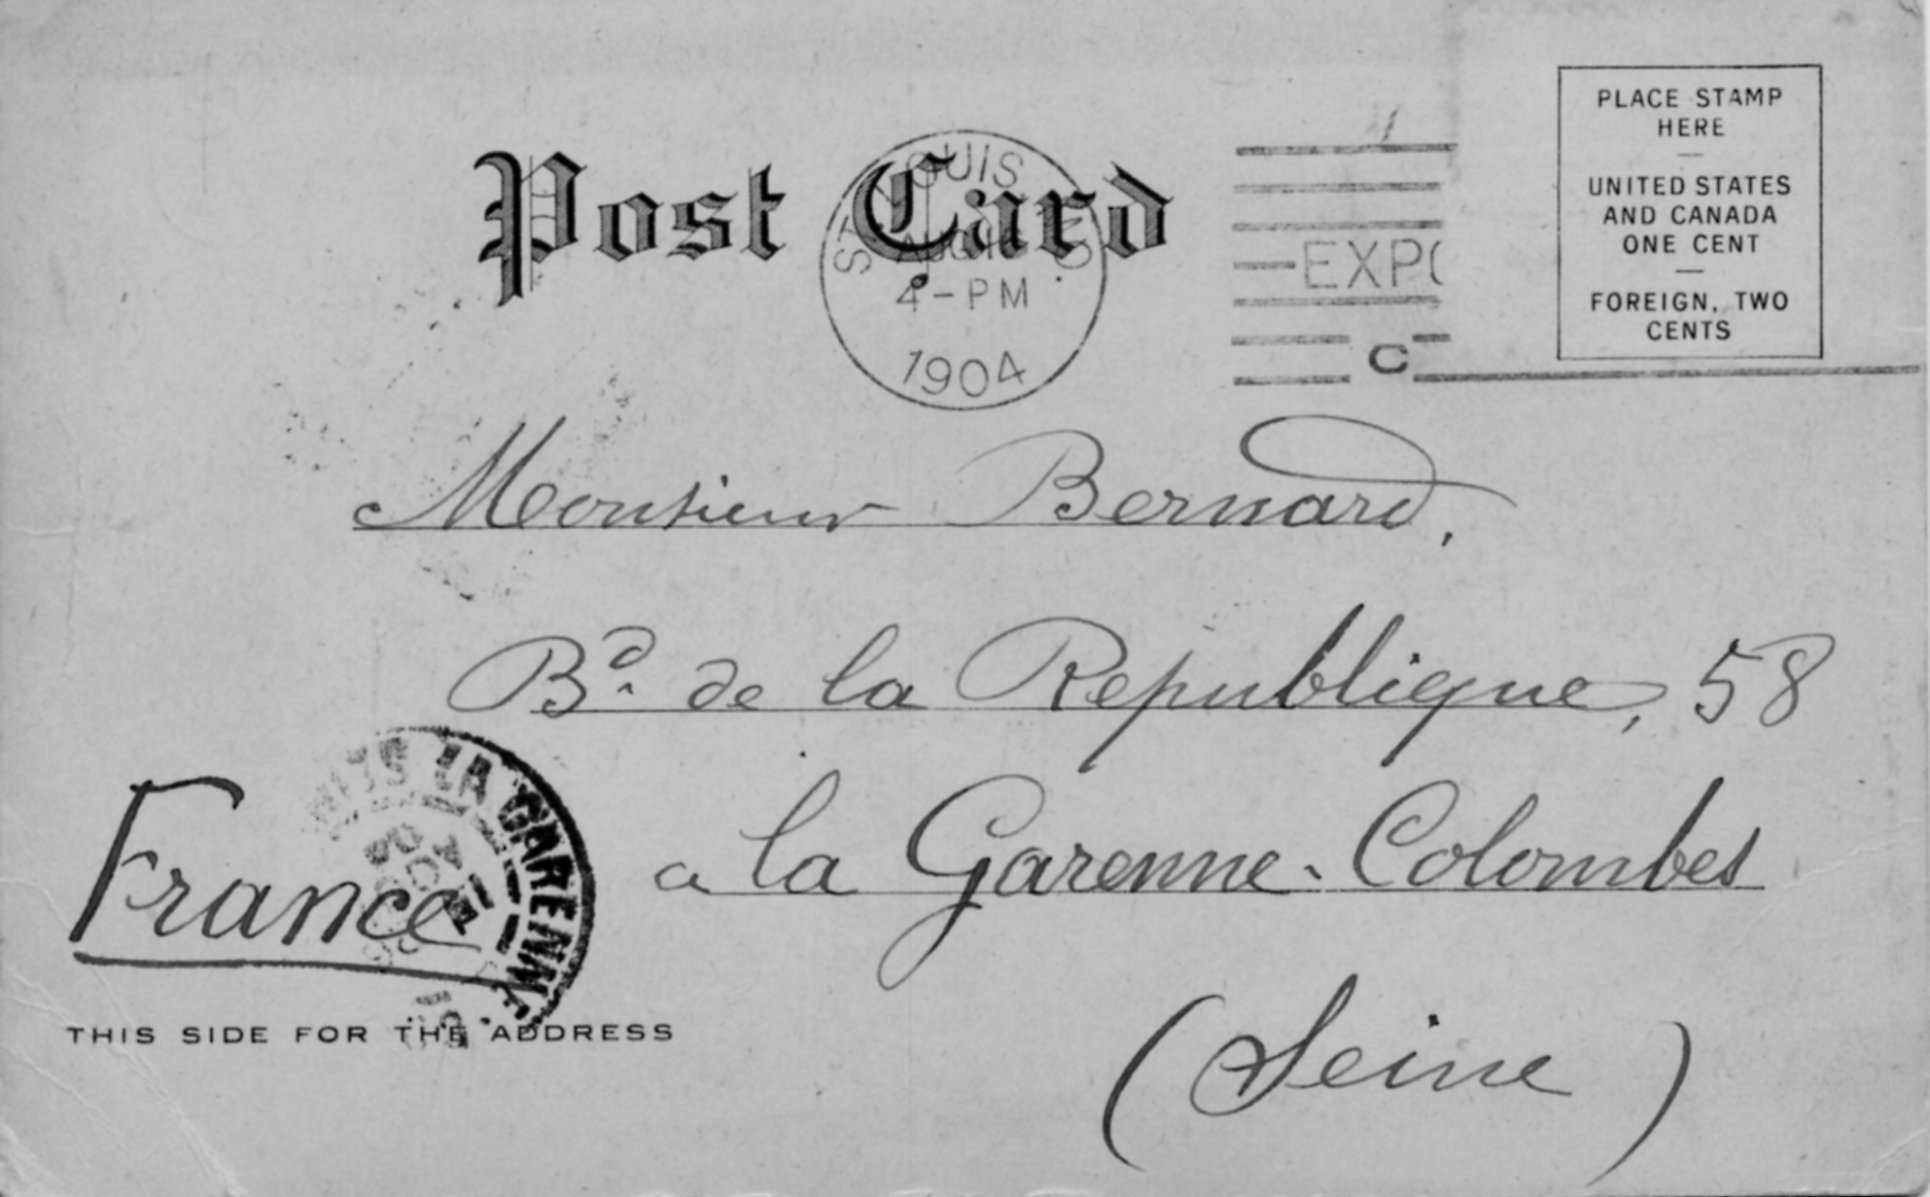 Post Card
ST. LOUIS MO.
AUG
4-PM
1904
EXPO
C
PLACE STAMP
HERE
UNITED STATES
AND CANADA
ONE CENT
FOREIGN, TWO
CENTS
Monsieur Bernard,
Bd. de la Republique, 58
a la Garenne-Colombes
(Seine)
France
LA GARENNE
THIS SIDE FOR THE ADDRESS